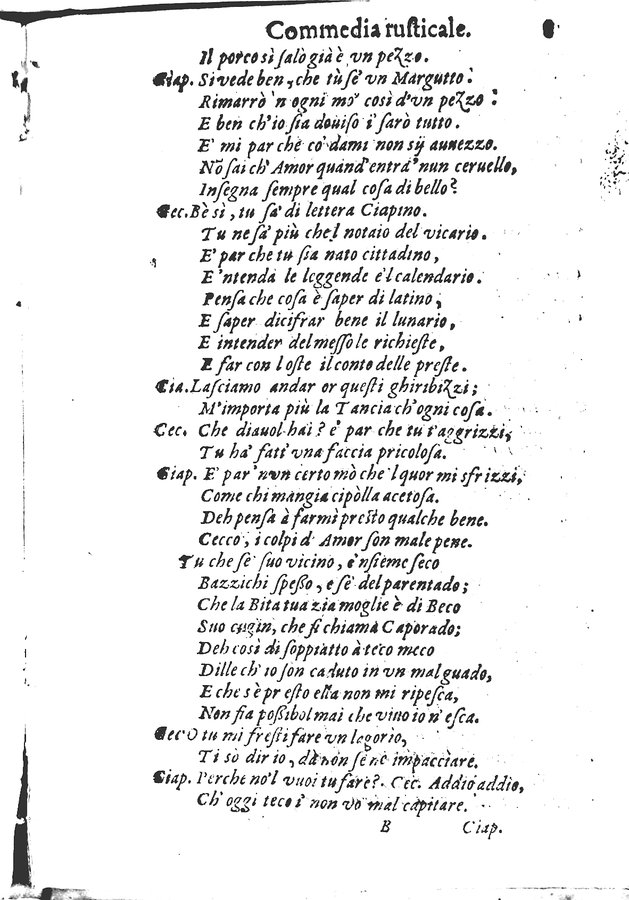 Commedia ruſticale.
Il porco sì ſalò già è vn peZzo.
Ciap. Si vede ben, che tù ſe' vn Margutto:
Rimarrò 'n ogni mo' così d'vn pezzo:
E ben ch'io ſia douiſo i' ſarò tutto.
E' mi par chè co' dami non sij auuezzo.
Nõ ſai ch'Amor quand'entra 'nun ceruello,
Inſegna ſempre qual coſa di bello?
Cec. Bè sì, tu ſa' di lettera Ciapino.
Tu ne ſa' più chel notaio del vicario.
E' par che tu ſia nato cittadino,
E 'ntenda le leggende e'l calendario.
Penſa che coſa è ſaper di latino,
E ſaper dicifrar bene il lunario,
E intender del meſſo le richieſte,
E far con l oſte il conto delle preſte.
Cia. Laſciamo andar or queſti ghiribiZzi;
M'importa più la Tancia ch'ogni coſa.
Cec. Che diauol hai? e' par che tu t'aggrizzi,
Tu ha' fatt' vna faccia pricoloſa.
Ciap. E' par 'nvn certo mò che 'l quor mi sfrizzi,
Come chi mangia cipòlla acetoſa.
Deh penſa à farmi preſto qualche bene.
Cecco, i colpi d' Amor ſon male pene.
Tu che ſe' ſuo vicino, e 'nſieme ſeco
Bazzichi ſpeſſo, e ſè del parentado;
Che la Bita tua zia moglie è di Beco
Suo cugin, che ſi chiama Caporado;
Deh così di ſoppiatto à teco meco
Dille ch' io ſon caduto in vn mal guado,
E che s'è preſto ella non mi ripeſca,
Non fia poſſibol mai che viuo io n'eſca.
Cec O tu mi freſti fare vn legorio,
Ti sò dir io, dà non ſe ne impacciare.
Ciap. Perche no'l vuoi tu fare? Cec. Addio addio,
Ch' oggi teco i' non vo mal capitare.
B Ciap.